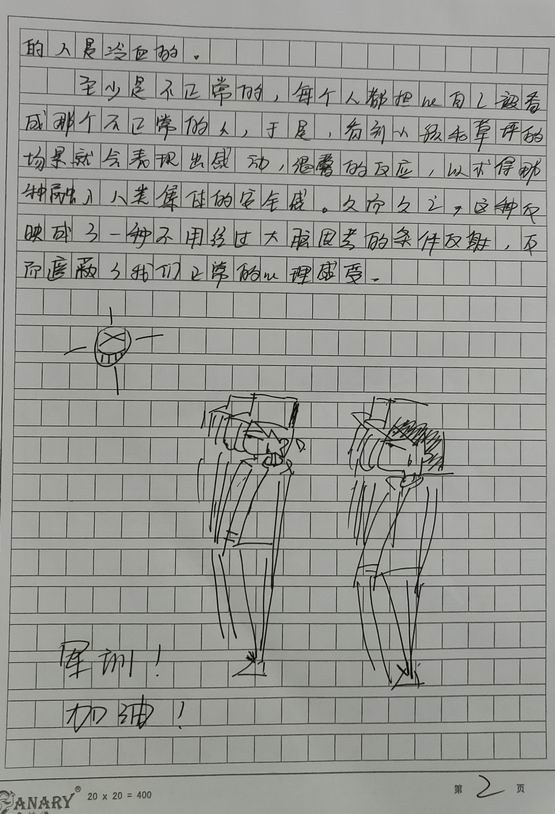 的人是冷血的。
至少是不正常的，每个人都把心自己被看
成那个不正常的人，于是，看到小孩和草坪的
场景就会表现出感动，想要的反应，以求得那
种融入人类集体的安全感。久而久之，这种反
映成了一种不用经过大脑思考的条件反射，反
而遮蔽了我们正常的心理感受。
军训！
加油！
CANARY 20 x 20 = 400
第 2 页